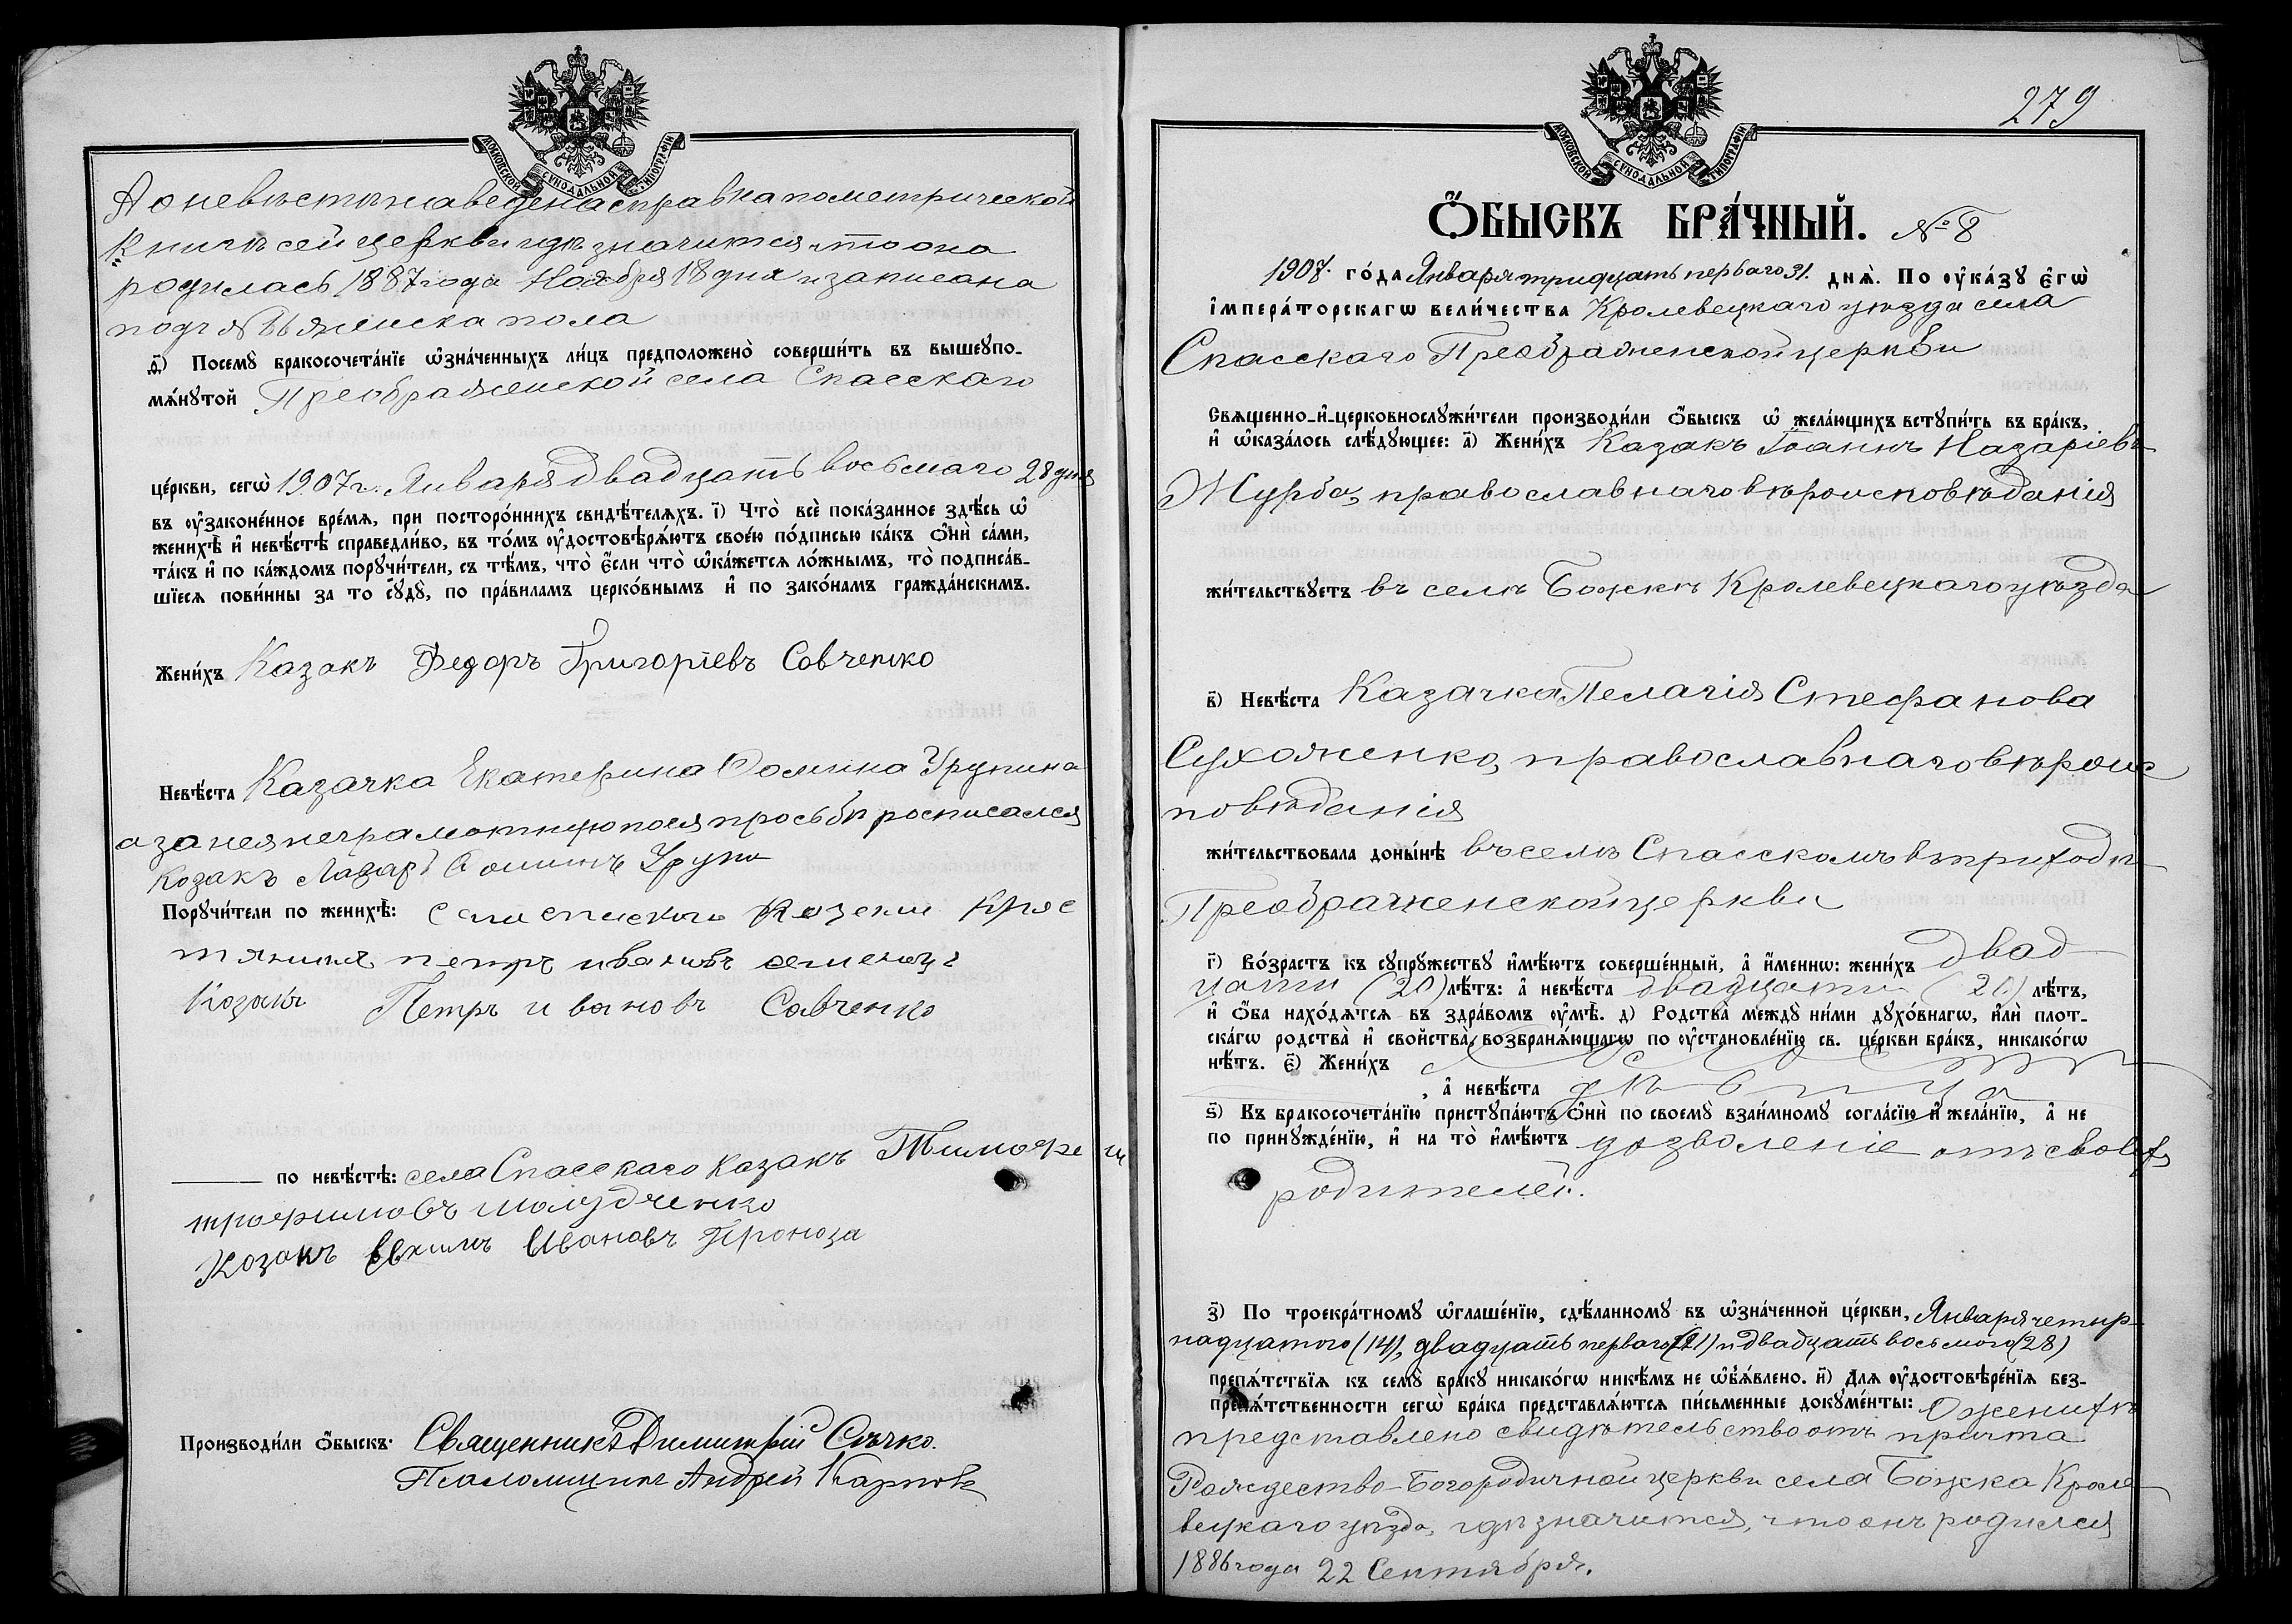 МОСКОВСКОЙ СѴНОДАЛЬНОЙ ТИПОГРАФІИ
А о невѣсты наведена справка по метрической
книгѣ сей церкви гдѣ значится что она
родилась 1887 года Ноября 18 дня и записана
подъ № женска пола
д҃і) Посемꙋ̀ бракосочета́нїе ѡ҆зна́ченныхъ ли́цъ предположено̀ соверши́ть въ вышеꙋпо-
мѧ́нꙋтой Преображенской села Спасскаго
це́ркви, сегѡ̀ 1907 г. Января двадцать восьмаго 28 дня
въ ᲂу҆законе́нное вре́мѧ, при посторо́ннихъ свидѣ́телѧхъ. і҃) Что̀ всѐ пока́занное здѣ́сь ѡ҆
женихѣ̀ и҆ невѣ́стѣ справедли́во, въ то́мъ ᲂу҆достовѣрѧ́ютъ свое́ю по́дписью ка́къ ѻ҆нѝ са́ми,
та́къ и҆ по ка́ждомъ порꙋчи́тели, съ тѣ́мъ, что̀ є҆́сли что̀ ѡ҆ка́жетсѧ ло́жнымъ, то̀ подписа́в-
шїесѧ пови́нны за то сꙋдꙋ̀, по пра́виламъ церко́внымъ и҆ по зако́намъ гражда́нскимъ.
Жени́хъ Казакъ Федоръ Григоріевъ Савченко
Невѣ́ста Казачка Екатерина Ѳомина Урупина
а за нея неграмотную по ея просьбѣ росписался
козакъ Лазарь Ѳоминъ Урупа
Порꙋчи́тели по женихѣ̀: села спаского крес
тянинъ петръ ивановъ
Козакъ Петръ ивановъ Савченко
по невѣ́стѣ: села Спасскаго казакъ Тимофей
трофимовъ
Козакъ Евхимъ Ивановъ Проноза
Производи́ли ѻ҆́быскъ: Священникъ Димитрій Сѣчко.
Псаломщикъ Андрей Карповъ
279
МОСКОВСКОЙ СѴНОДАЛЬНОЙ ТИПОГРАФІИ
Ѻ҆́БЫСКЪ БРА́ЧНЫЙ. № 8
1907. го́да Января тридцать перваго 31. днѧ̀. По ᲂу҆ка́зꙋ є҆гѡ̀
і҆мпера́торскагѡ вели́чества Кролевецкаго уѣзда села
Спасскаго Преображенской церкви
Свѧщенно-и҆-церковнослꙋжи́тели производи́ли ѻ҆́быскъ ѡ҆ жела́ющихъ встꙋпи́ть въ бра́къ,
и҆ ѡ҆каза́лось слѣ́дꙋющее: а҃) Жени́хъ Казакъ Іоаннъ Назаріевъ
Журба, православнаго вѣроисповѣданія
жи́тельствꙋетъ въ селѣ Божкѣ Кролевецкаго уѣзда
в҃) Невѣ́ста Казачка Пелагія Стефанова
Сухоженко, православнаго вѣроис
повѣданія
жи́тельствовала доны́нѣ въ селѣ Спасскомъ въ приходѣ
Преображенской церкви
г҃) Во́зрастъ къ сꙋпрꙋжествꙋ и҆мѣ́ютъ соверше́нный, а҆ и҆́меннѡ: жени́хъ двад
цати (20) лѣ́тъ: а҆ невѣ́ста двадцати (20) лѣ́тъ,
и҆ ѻ҆́ба нахо́дѧтсѧ въ здра́вомъ ᲂу҆мѣ̀. д҃) Родства̀ междꙋ̀ ни́ми дꙋхо́внагѡ, и҆лѝ плот-
ска́гѡ родства̀ и҆ свойства̀, возбранѧ́ющагѡ по ᲂу҆становле́нїю св. це́ркви бра́къ, никако́гѡ
нѣ́тъ. є҃) Жени́хъ холостъ
, а҆ невѣ́ста дѣвица
ѕ҃) Къ бракосочета́нїю пристꙋпа́ютъ ѻ҆нѝ по своемꙋ̀ взаи́мномꙋ согла́сїю и҆ жела́нїю, а҆ не
по принꙋжде́нїю, и҆ на то̀ и҆мѣ́ютъ дозволеніе отъ своихъ
родителей.
з҃) По троекра́тномꙋ ѡ҆глаше́нїю, сдѣ́ланномꙋ въ ѡ҆зна́ченной це́ркви, Января четыр-
надцатого (14), двадцать перваго (21) и двадцать восьмого (28)
препѧ́тствїѧ къ семꙋ̀ бра́кꙋ никако́гѡ никѣ́мъ не ѡ҆б̾ѧ́влено. и҃) Длѧ ᲂу҆достовѣре́нїѧ без-
препѧ́тственности сегѡ̀ бра́ка представлѧ́ютсѧ пи́сьменные докꙋме́нты: О женихѣ
представлено свидѣтельство отъ причта
Рождество-Богородичной церкви села Божка Кроле
вецкаго уѣзда, гдѣ значится, что онъ родился
1886 года 22 Сентября.